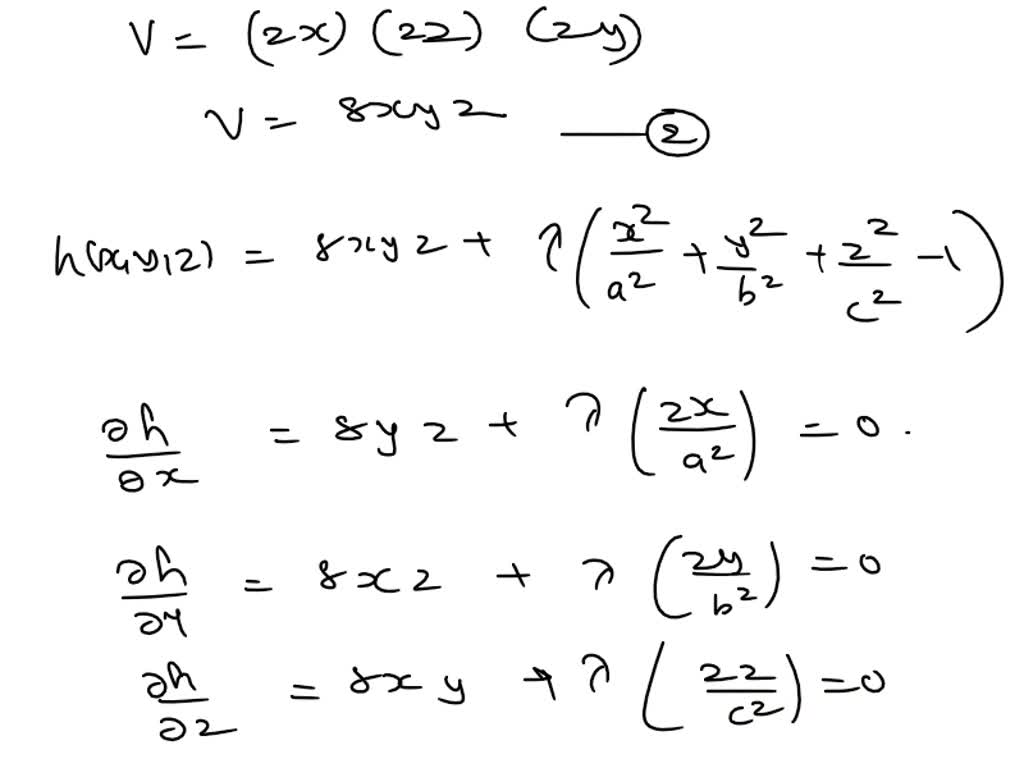 V = (2x) (2z) (2y)
V = 8xyz —— ②
h(x,y,z) = 8xyz + λ(x²/a² + y²/b² + z²/c² - 1)
∂h/∂x = 8yz + λ(2x/a²) = 0.
∂h/∂y = 8xz + λ(2y/b²) = 0
∂h/∂z = 8xy + λ(2z/c²) = 0